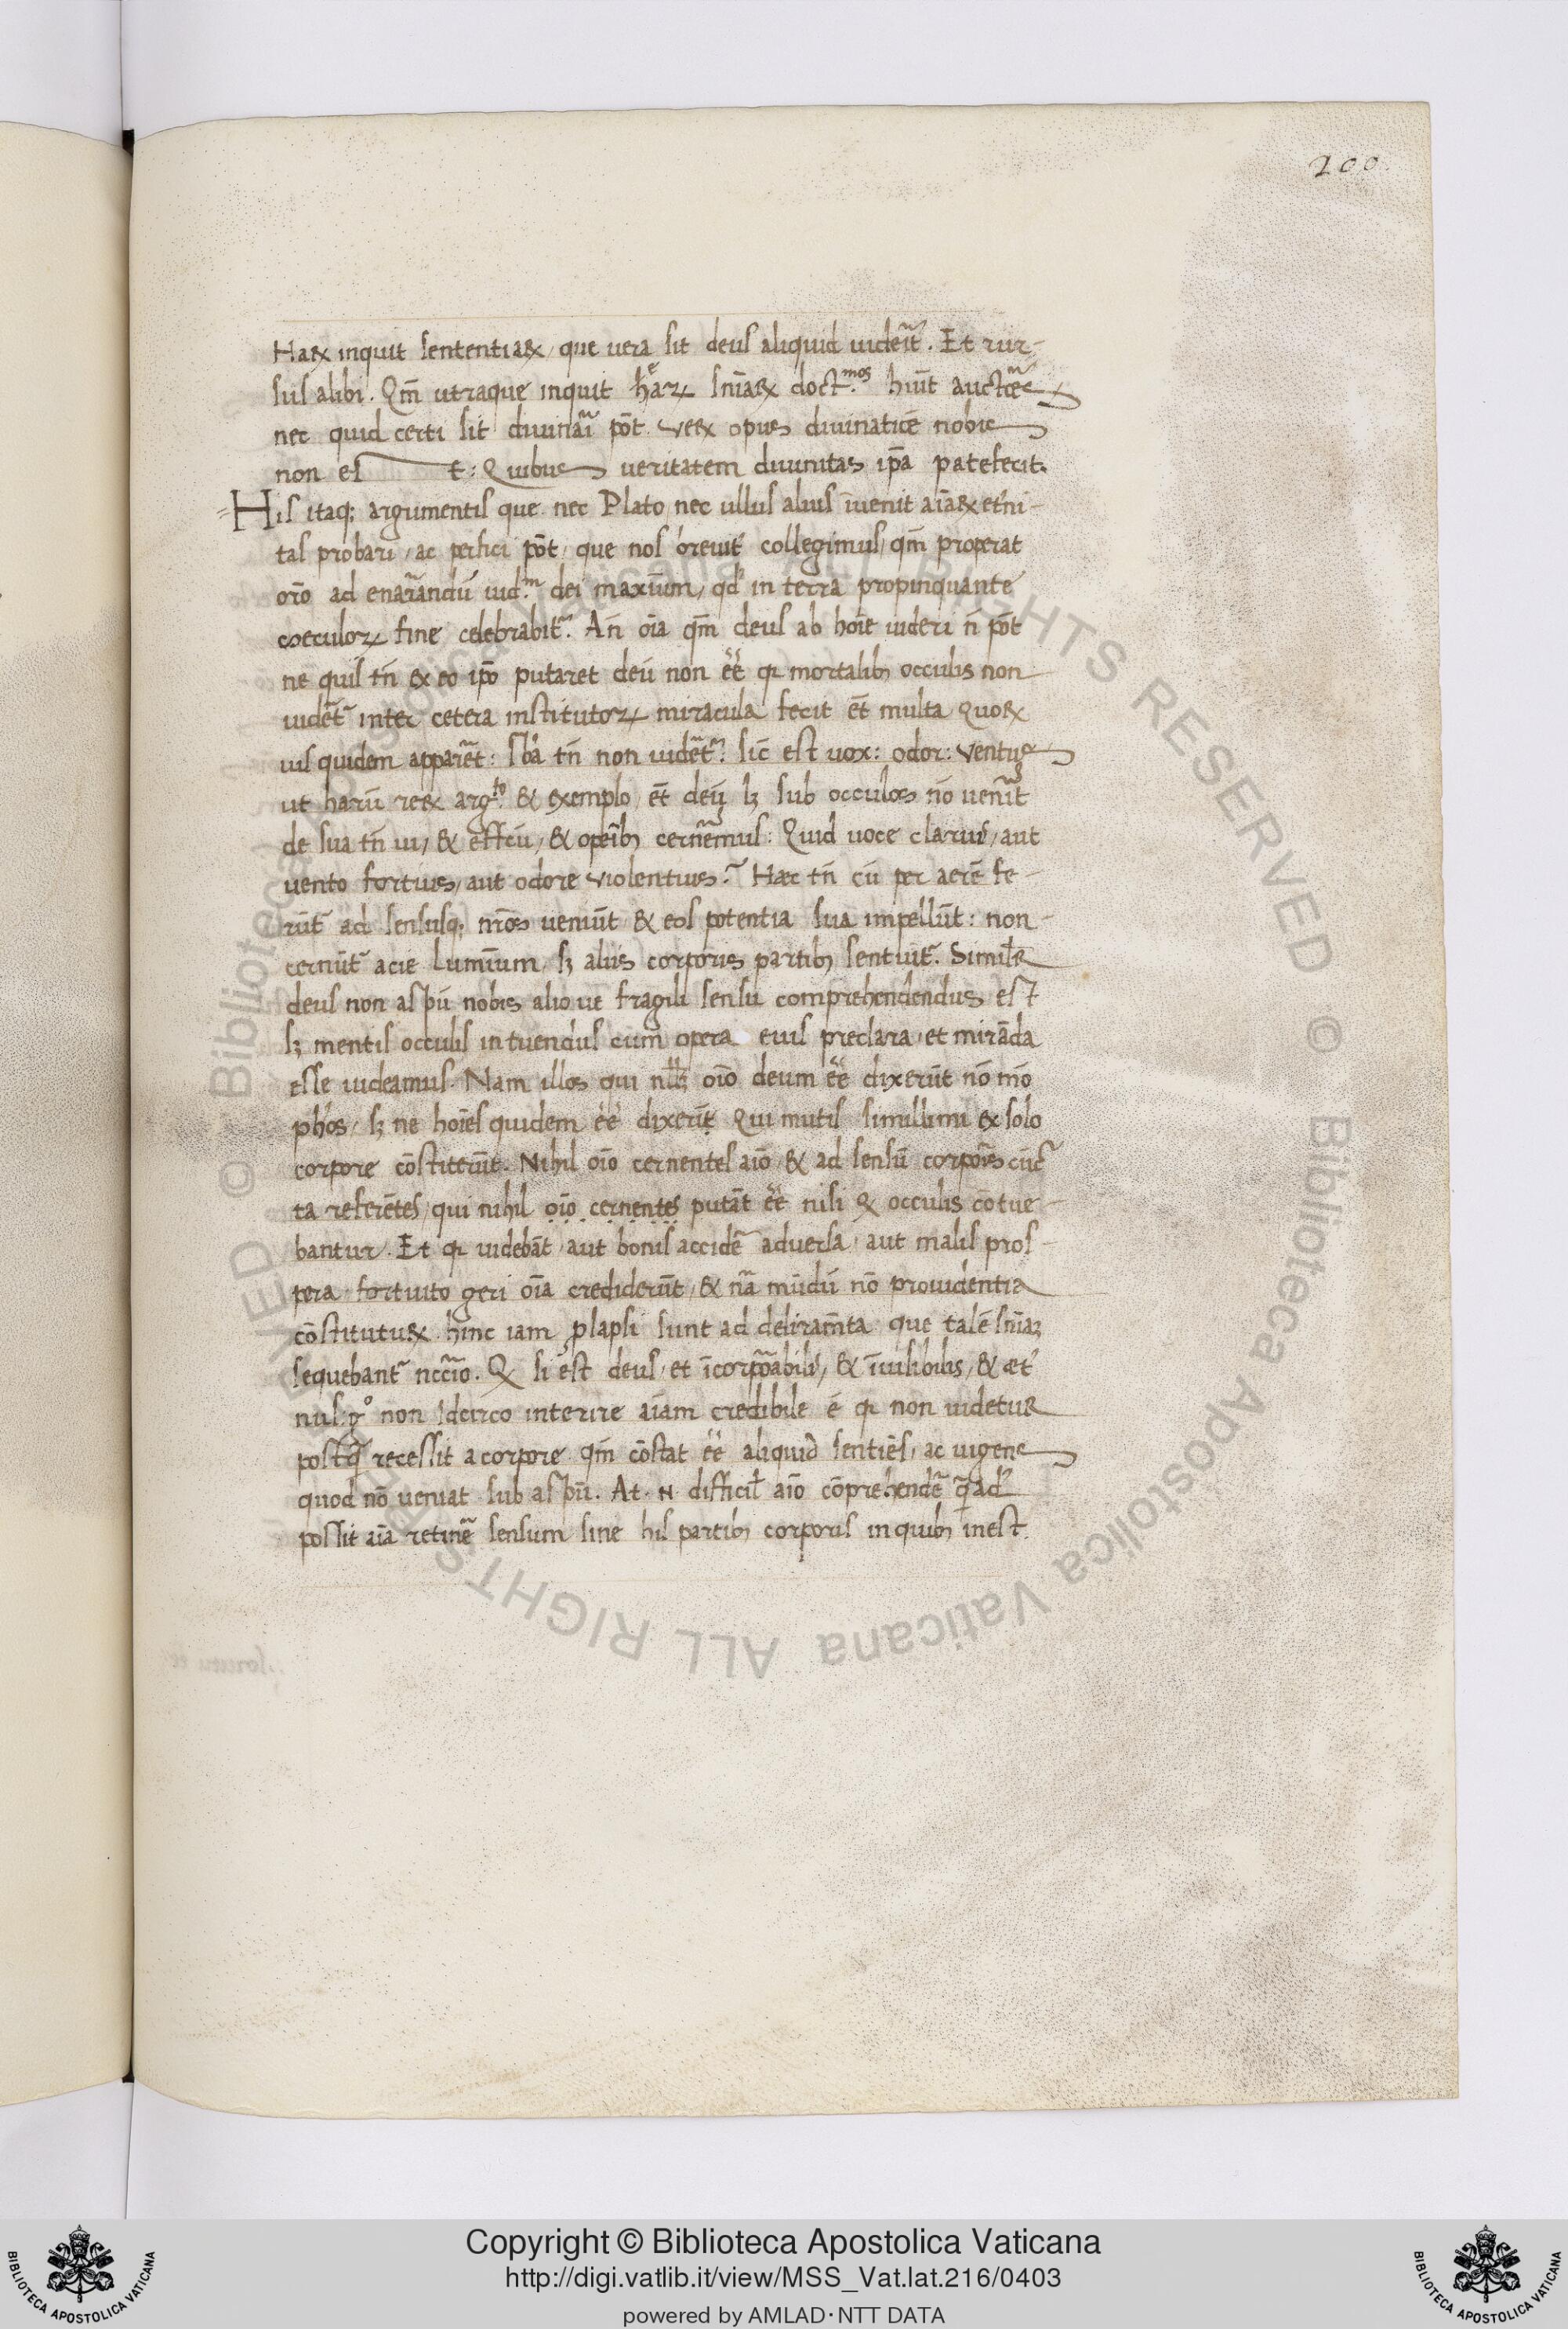 200
Haꝝ inquit sententiaꝝ, que uera sit deus aliquid uideĩt. Et rur-
sus alibi. Qm̃ utraque inquit haꝝ sñiaꝝ doct.mos hñt auctõẽs
nec quid certi sit diuinãi põt. Veꝝ opus diuinatiõẽ nobis
non est: Quibus ueritatem diuinitas ip̃a patefecit.
His itaqꝫ argumentis que nec Plato nec ullus alius ĩuenit aĩaꝝ et̃ni-
tas probari, ac perfici põt, que nos breuit̃ collegimus, qm̃ properat
orõ ad enarãndũ iud.m dei maxĩum, qd̓ in terra propinquante
coeculoꝝ fine celebrabit̃. Añ oĩa qm̃ deus ab hoĩe uideri ñ põt
ne quis tñ ex eo ip̃o putaret deũ non ẽẽ qꝛ mortalibꝫ occulis non
uidẽt̃ inter cetera institutoꝝ miracula fecit ẽt multa quoꝝ
uis quidem apparẽt: sba tñ non uidẽt̃: sic̃ est uox: odor: ventus
ut harũ reꝝ arg.to & exemplo ẽt deũ lꝫ sub occulos nõ uenĩt
de sua tñ ui, & effcũ, & opeĩbꝫ cernẽmus: Quid uoce clarius, aut
uento fortius, aut odore violentius? Haec tñ cũ per aerẽ fe-
rũt̃ ad sensusqꝫ nr̃os ueniũt & eos potentia sua impellũt: non
cernũt̃ acie lumĩum, sꝫ aliis corporis partibꝫ sentiũt̃. Simil̃r
deus non aspũ nobis alio ue fragili sensu comprehendendus est
sꝫ mentis occulis intuendus cum opera eius preclara, et mirãda
esse uideamus. Nam illos qui nllm̃ oĩo deum ẽẽ dixerũt nõ mõ
ph̃os, sꝫ ne hoĩes quidem ẽẽ dixerĩt. Qui mutis simillimi ex solo
corpore cõstiterũt. Nihil oĩo cernentes aĩo & ad sensũ corporis cũc̃
ta referẽtes, qui nihil oĩo cernentes putãt ẽẽ nisi Q occulis cõtue-
bantur. Et qꝛ uidebãt aut bonis accidẽ aduersa, aut malis pros-
pera fortuito geri oĩa crediderũt, & nã mũdũ nõ prouidentia
cõstitutuꝝ. hinc iam plapsi sunt ad deliramẽta que talẽ sñiaꝫ
sequebant̃ nccĩo. Q si est deus, et ĩcorporabilis, & ĩuisibilis, & æt̃
nus: g° non idcirco interire aĩam credibile ẽ qꝛ non uidetur
postq̃ recessit a corpore qm̃ cõstat ẽẽ aliquid sentiẽs, ac uigens
quod nõ ueniat sub aspũ. At. N. difficil̃ aĩo cõprehendẽ q̃ad̓
possit aĩa retinẽ sensum sine his partibꝫ corporis in quibꝫ inest.
Copyright © Biblioteca Apostolica Vaticana
http://digi.vatlib.it/view/MSS_Vat.lat.216/0403
powered by AMLAD·NTT DATA
BIBLIOTECA APOSTOLICA VATICANA
BIBLIOTECA APOSTOLICA VATICANA
© Biblioteca Apostolica Vaticana ALL RIGHTS RESERVED © Biblioteca Apostolica Vaticana ALL RIGHTS RESERVED